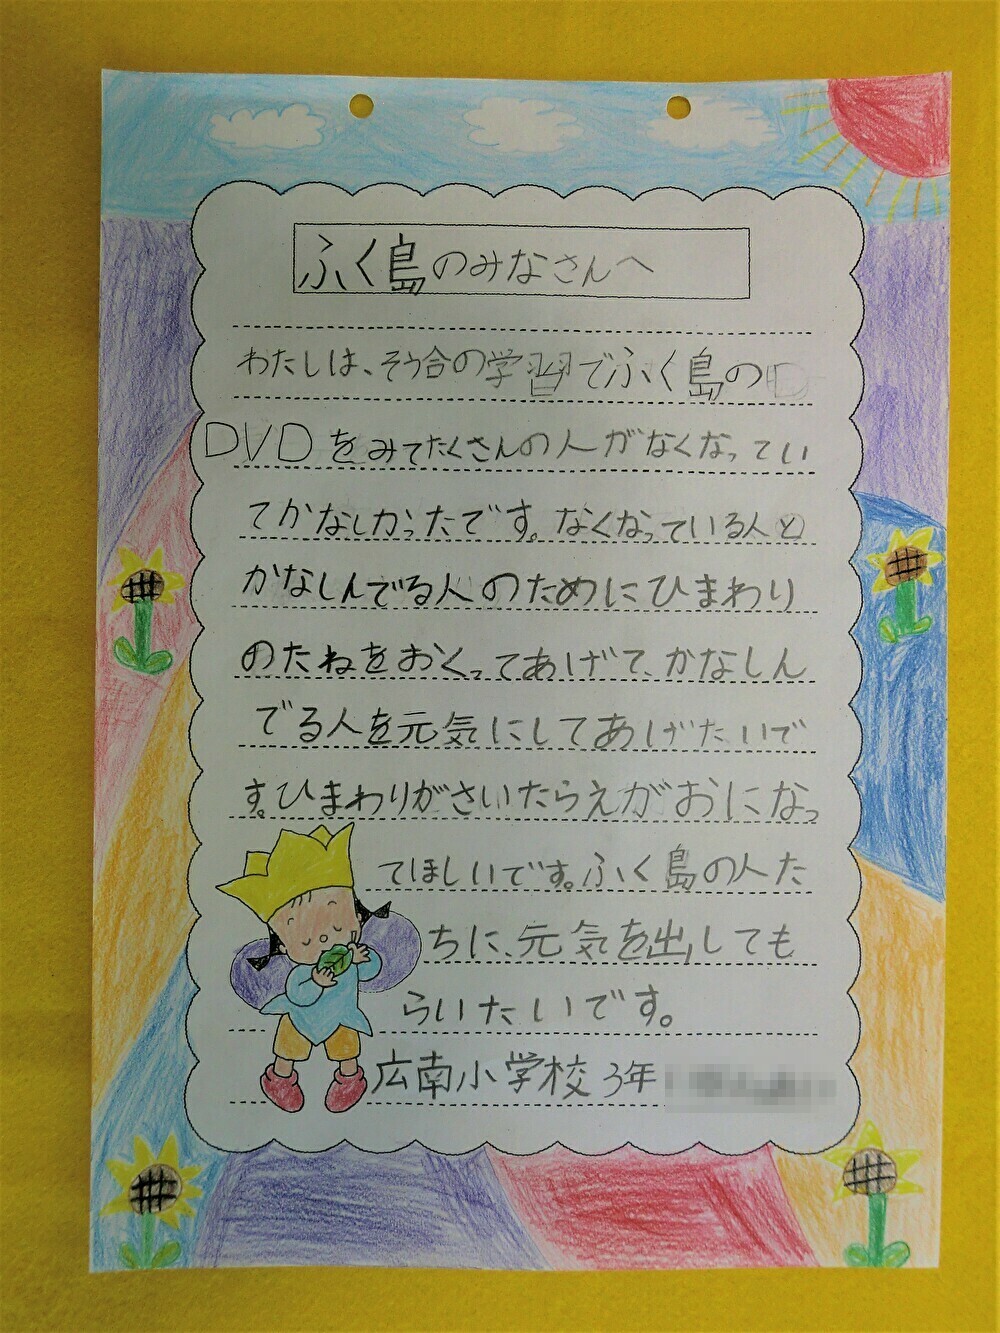 ふく島のみなさんへ
わたしは、そう合の学習でふく島の
DVDをみてたくさんの人がなくなってい
てかなしかったです。なくなっている人と
かなしんでる人のためにひまわり
のたねをおくってあげて、かなしん
でる人を元気にしてあげたいで
す。ひまわりがさいたらえがおになっ
てほしいです。ふく島の人た
ちに、元気を出しても
らいたいです。
広南小学校3年